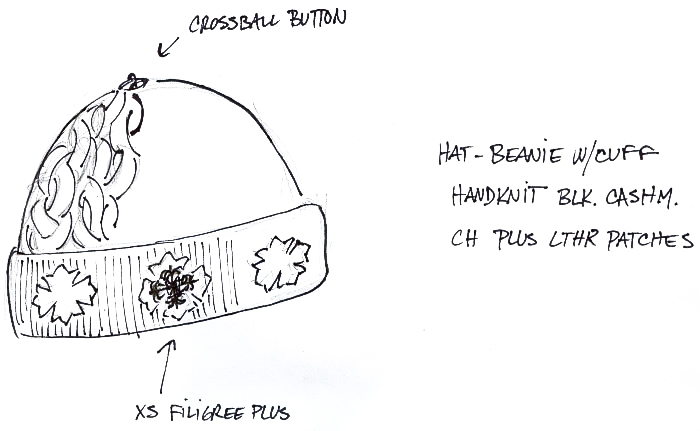 CROSSBALL BUTTON
HAT - BEANIE W/CUFF
HANDKNIT BLK. CASHM.
CH PLUS LTHR PATCHES
XS FILIGREE PLUS